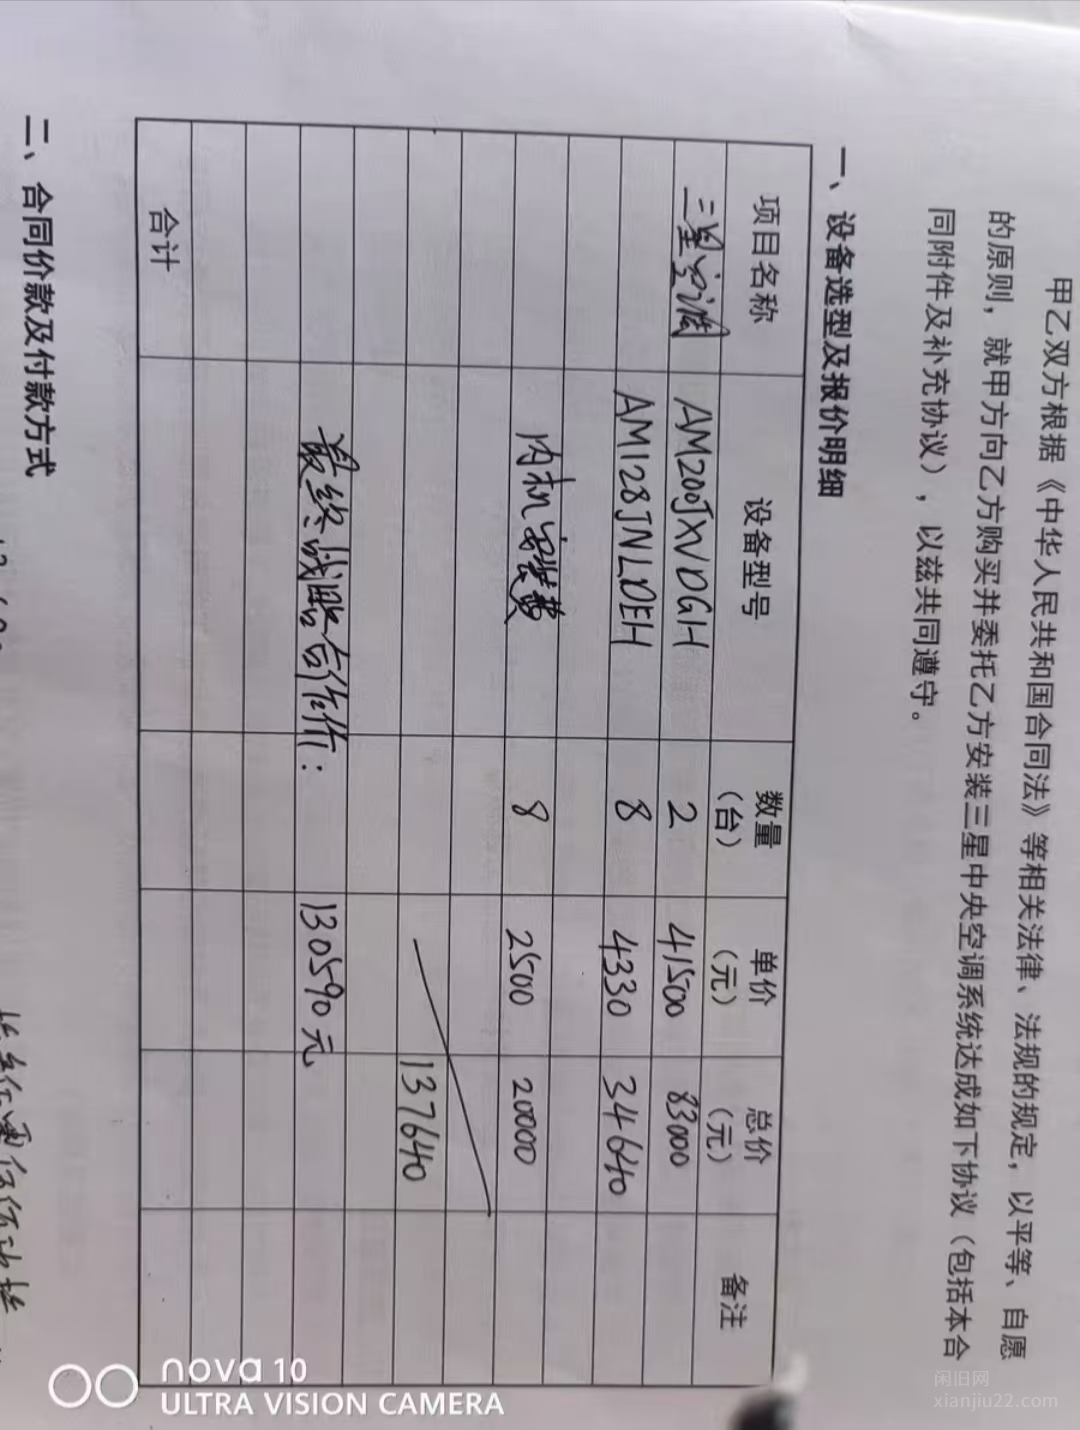 甲乙双方根据《中华人民共和国合同法》等相关法律、法规的规定，以平等、自愿
的原则，就甲方向乙方购买并委托乙方安装三星中央空调系统达成如下协议（包括本合
同附件及补充协议），以兹共同遵守。
一、设备选型及报价明细
项目名称 设备型号 数量（台） 单价（元） 总价（元） 备注
三星空调 AM200JXVDGH 2 41500 83000
AM128JNLDEH 8 4330 34640
内机安装费 8 2500 20000
137640
最终战略合作价： 130590元
合计
二、合同价款及付款方式
nova 10
ULTRA VISION CAMERA
闲旧网
xianjiu22.com